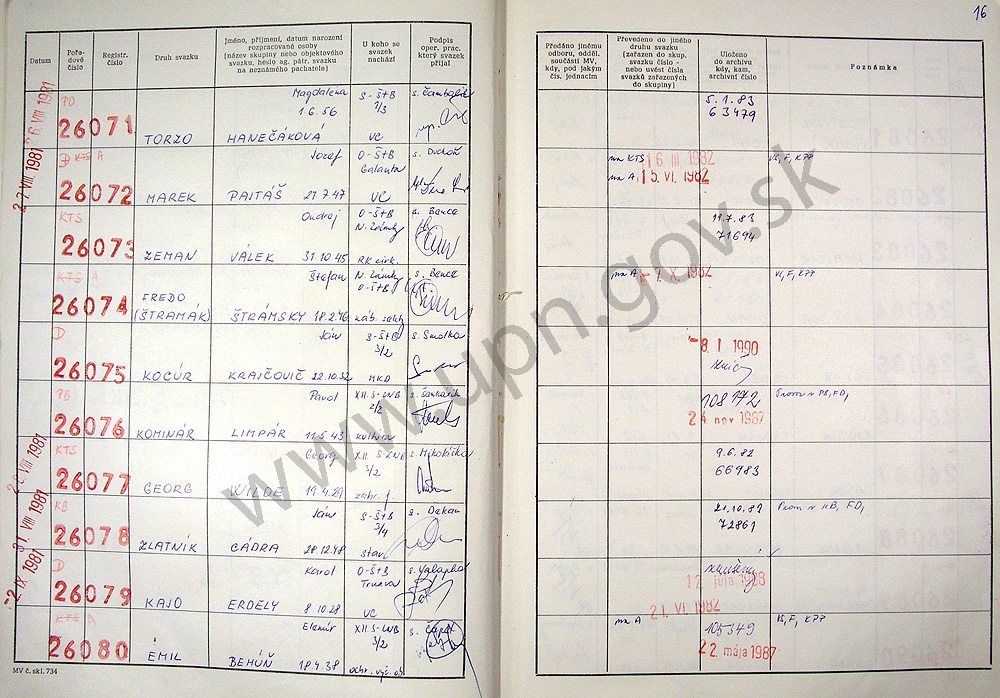 16
Datum
Pořadové číslo
Registr. číslo
Druh svazku
Jméno, příjmení, datum narození rozpracované osoby (název skupiny nebo objektového svazku, heslo ag. pátr. svazku na neznámého pachatele)
U koho se svazek nachází
Podpis oper. prac. který svazek přijal
Předáno jinému odboru, odděl. součásti MV, kdy, pod jakým čís. jednacím
Převedeno do jiného druhu svazku (zařazen do skup. svazku číslo - nebo uvést čísla svazků zařazených do skupiny)
Uloženo do archivu kdy, kam, archivní číslo
Poznámka
26. VIII 1981
PO
26071
TORZO
Magdalena
1.6.56
HANEČÁKOVÁ
S-ŠtB
1/3
VC
s. Čambalík
5.1.83
63479
27. VIII 1981
D KTS A
26072
MAREK
Jozef
PAJTÁŠ 21.7.47
O-ŠtB
Galanta
VC
s. Duchoň
na KTS 16. III. 1982
na A, 15. VI. 1982
VC, F, KPP
KTS
26073
ZEMAN
Ondrej
VÁLEK 31.10.45
O-ŠtB
N. Zámky
RK cirk.
s. Benca
19.7.83
71694
KTS A
26074
FREDO
(ŠTRAMÁK)
Štefan
ŠTRÁMSKY 18.2.46
N. Zámky
O-ŠtB
náb. sekty
s. Benca
na A -1. X. 1982
VC, F, KPP
D
26075
KOCÚR
Ján
KRAJČOVIČ 22.10.52
S-ŠtB
3/2
MKD
s. Smolka
-8. I. 1990
PB
26076
KOMINÁR
Pavol
LIMPÁR 11.5.43
XII. S-ZNB
2/2
kultura
108172
24. nov 1987
28. VIII 1981
KTS
26077
GEORG
Georg
WILDE 19.4.29
XII S ZNB
3/2
zahr. f.
s. Mikolička
9.6.82
66983
31. VIII 1981
KB
26078
ZLATNÍK
Ján
CÁDRA 28.12.48
S-ŠtB
3/4
stav.
s. Dekan
21.10.83
72861
-2. IX 1981
D
26079
KAJO
Karol
ERDELY 8.10.28
O-ŠtB
Trnava
VC
12. júla 1988
KTS A
26080
EMIL
Elemír
BEHÚŇ 18.4.38
XII S-ZNB
3/2
s. Čapek
na A 21. VI. 1982
105349
22. mája 1987
VS, F, KPP
MV č. skl. 734
www.upn.gov.sk